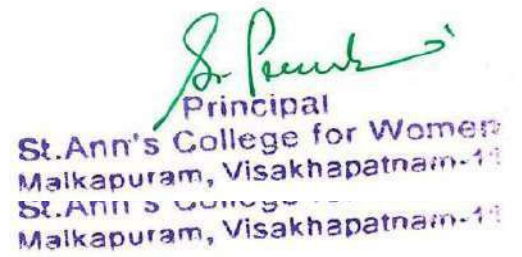 Principal
St.Ann's College for Women
Malkapuram, Visakhapatnam-11
St.Ann's College for
Malkapuram, Visakhapatnam-11